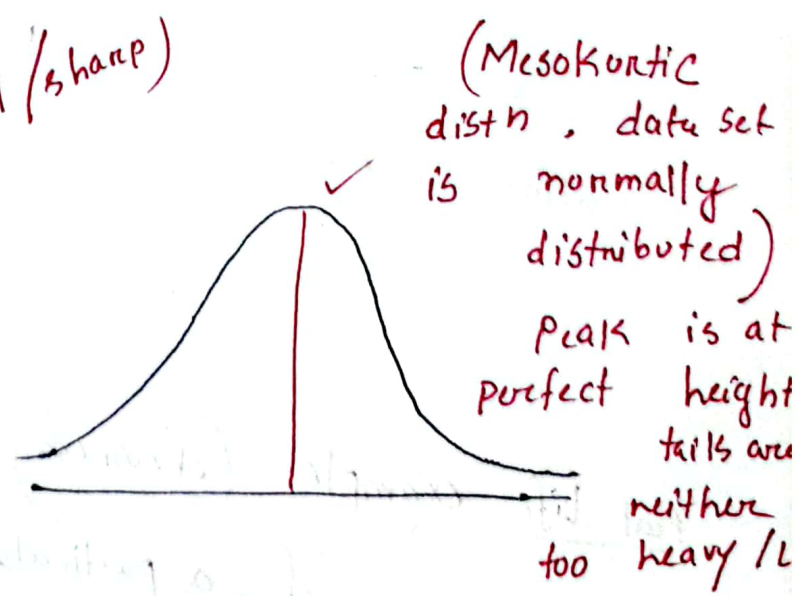 /sharp)
(Mesokurtic
distn, data set
is normally
distributed)
Peak is at
perfect height
tails are
neither
too heavy /L